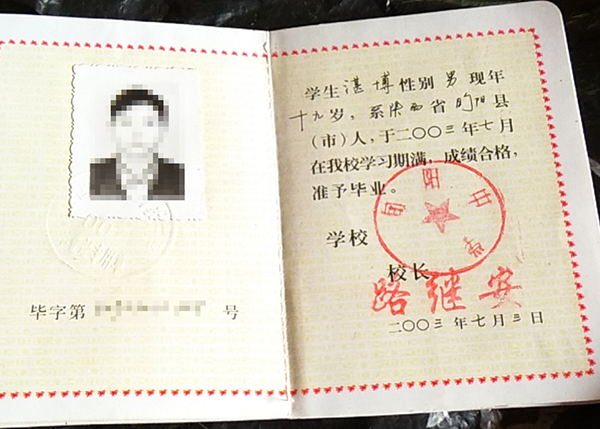 毕字第
号
学生湛博性别男现年
十九岁，系陕西省旬阳县
（市）人，于二〇〇三年七月
在我校学习期满，成绩合格，
准予毕业。
旬阳中
学校
校长
路继安
二〇〇三年七月三日